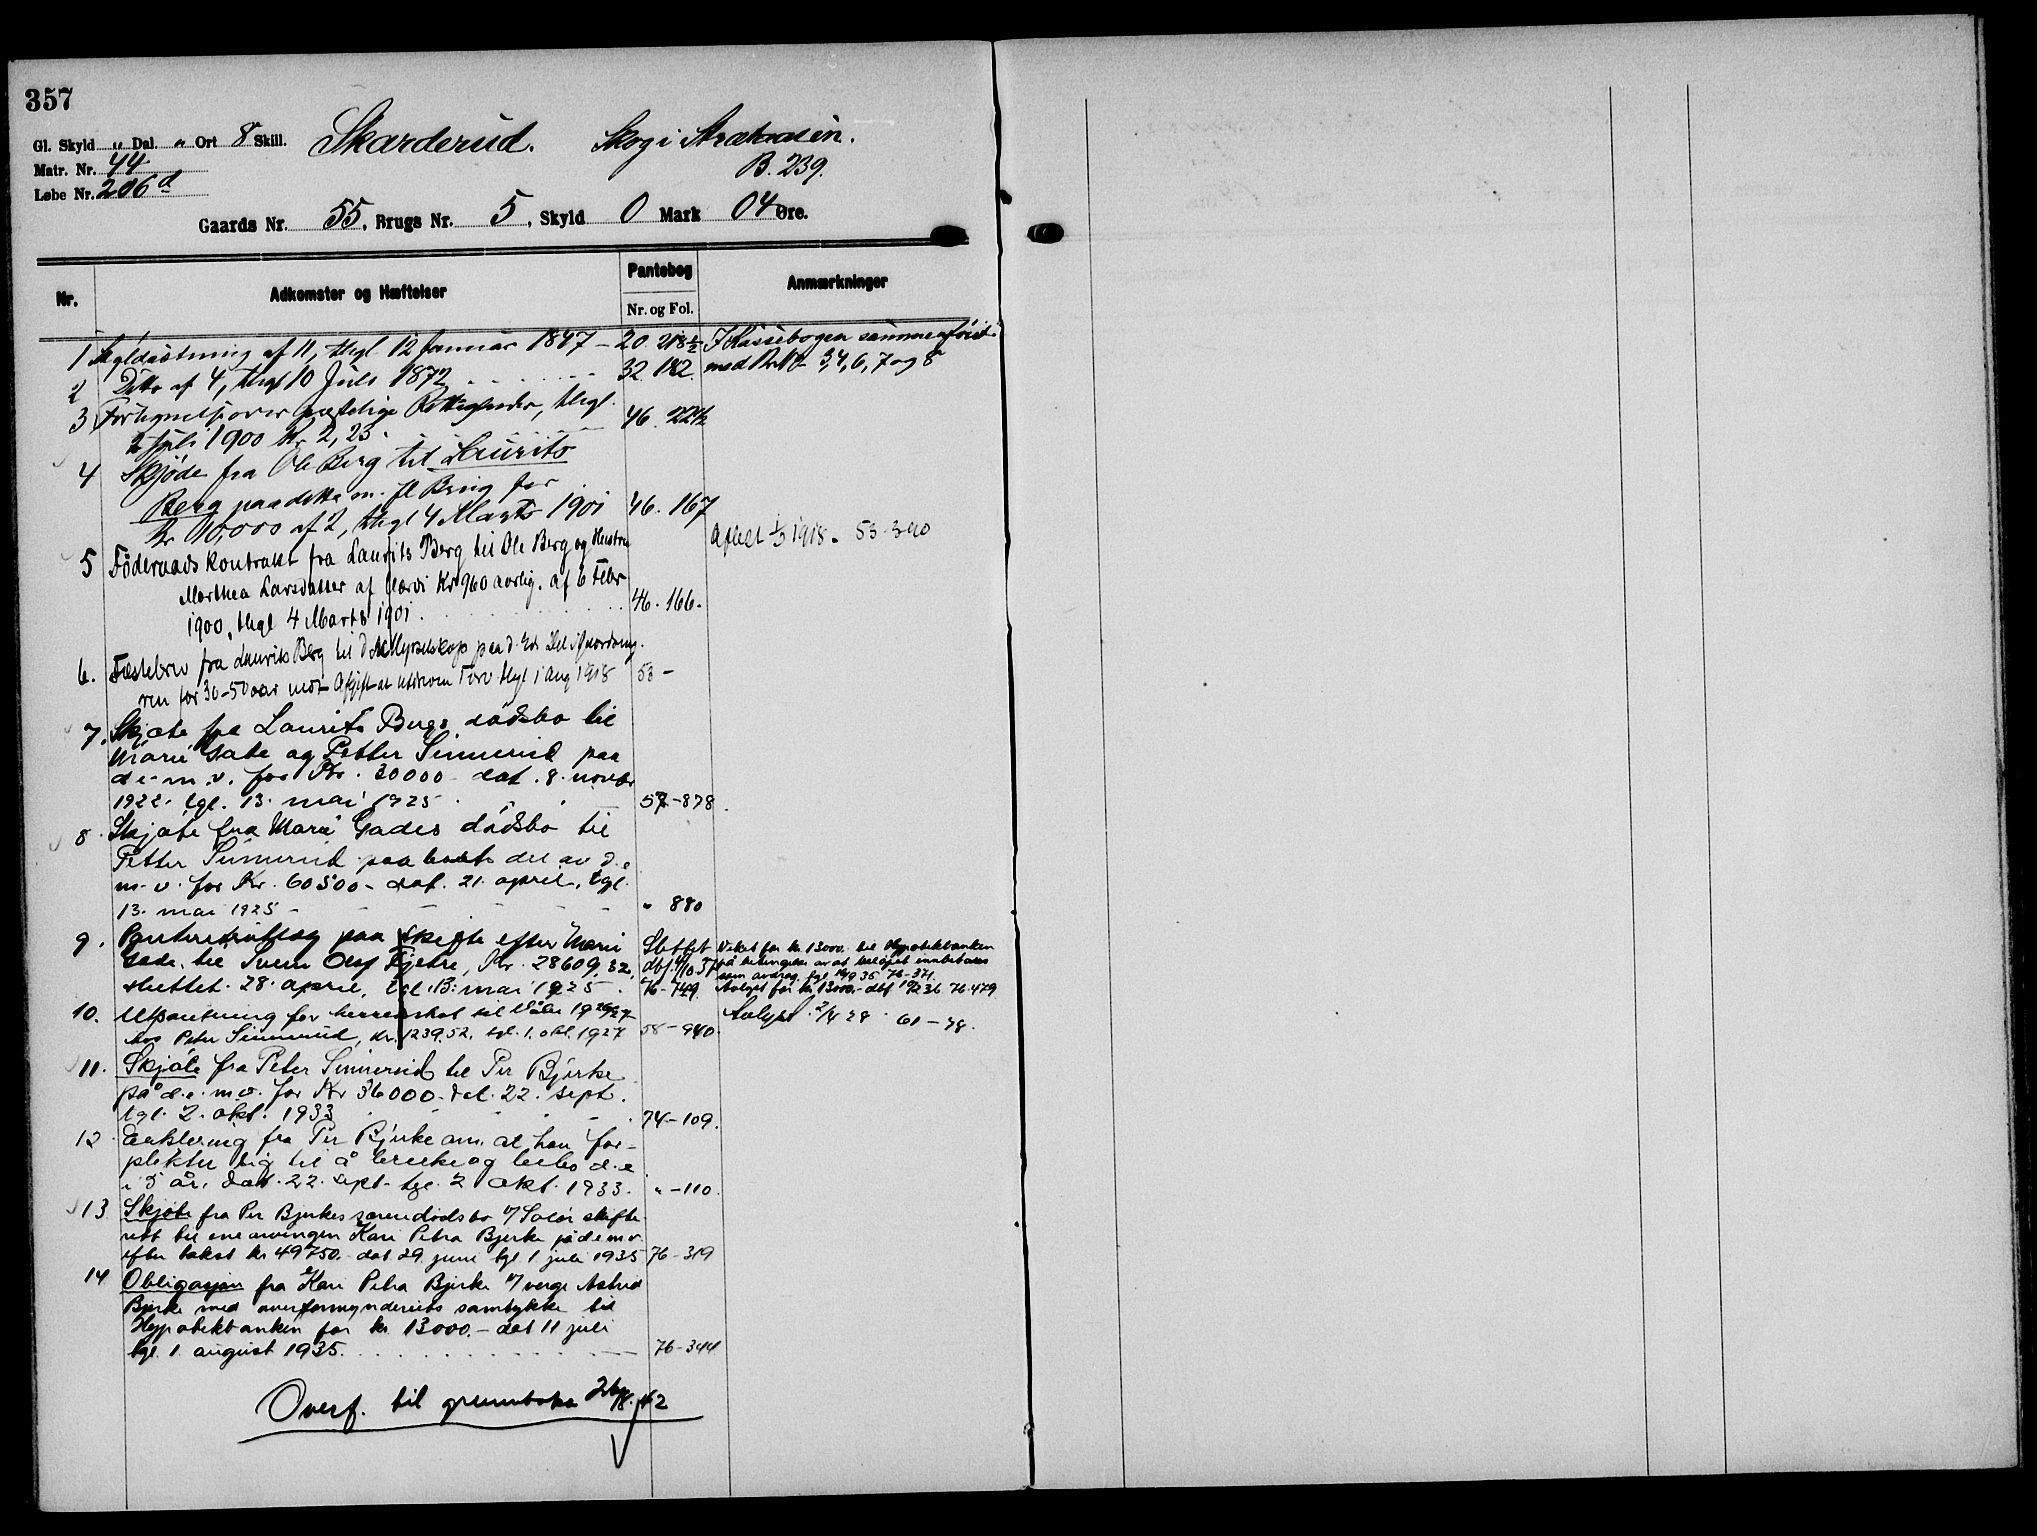 357
Gl. Skyld " Dal. " Ort 8 Skill. Skarderud. Skog i
Matr. Nr. 44 B. 239.
Løbe Nr. 206d
Gaards Nr. 55, Brugs Nr. 5, Skyld 0 Mark 04 Øre.
Nr. Adkomster og Hæftelser Pantebog Nr. og Fol. Anmærkninger
1 Skyldsætning af 11, thgl 12 Januar 1847 – 20. 218½ I Kassebogen sammenføiet
2 Ditto af 4, thgl 10 Juli 1872 32. 182. med Br. Nr 3, 4, 6, 7 og 8
3 Fortegnelse over Rettigheder, thgl.
2 Juli 1900 Kr 2,23. 46.
4 Skjøde fra Ole Berg til Laurits
Berg paa dette m. fl Brug for
Kr 10,000 af 2, thgl 4 Marts 1901 46. 167
5 Føderaadskontrakt fra Laurits Berg til Ole Berg og Hustru Aflæst 1/5 1918. 53-390
Marthea Larsdatter af Værdi Kr 960 aarlig. af 6 Febr
1900, thgl 4 Marts 1901. 46. 166.
6. Fæstebrev fra Laurits Berg til Myrselskap paa d. Ed.
ren for 30-50 aar mot Afgift at Torv thgl 1 Aug 1918 53 –
7. Skjøte fra Laurits Bergs dødsbo til
Marie Gade og Petter Simerud paa
d.e. m.v. for Kr. 30000 – dat. 8. novbr
1922. tgl. 13. mai 1925 57-878.
8. Skjøte fra Marie Gades dødsbo til
Petter Simerud paa del av d.e.
m.v. for Kr. 60500 – dat. 21. april, tgl.
13. mai 1925 – " 880
9. Panteutlæg paa skifte efter Marie Slettet Veket for kr. 13000.- til Hypotekbanken
Gade til Svein Olsf Fjetre, Kr. 28609,32, på betingelse av at beløpet innbetales
sluttet. 28. april, tgl. 13. mai 1925. 76-749 som avdrag tgl 35 76-371
Avlyst for kr. 13000.- 36 76-479
10. Utpantning for herredskat til Våler 1926/27
hos Peter Simerud, kr. 1239,52, tgl. 1. okt. 1927 58-940. Avlyst 2/4 28. 61-78.
11. Skjøte fra Peter Simerud til Per Bjerke
på d.e. m.v. for Kr 36000 – dat. 22. sept.
tgl. 2. okt. 1933 74-109.
12. Erklæring fra Per Bjerke om at han for-
plikter sig til å bruke og bebo d.e.
i 5 år. Dat. 22. sept – tgl. 2 okt. 1933. " -110.
13 Skjøte fra Per Bjerkes særendodsbo v/ Solør skifte
rett til enearvingen Kari Petra Bjerke på d.e m.v.
efter takst kr 49750.- dat 29 juni tgl 1 juli 1935 76-319
14 Obligasjon fra Kari Petra Bjerke v/ verge Astrid
Bjerke med overformynderiets samtykke til
Hypotekbanken for kr 13000.- dat 11 juli
tgl 1 august 1935. 76-344
Overf. til grunnboka